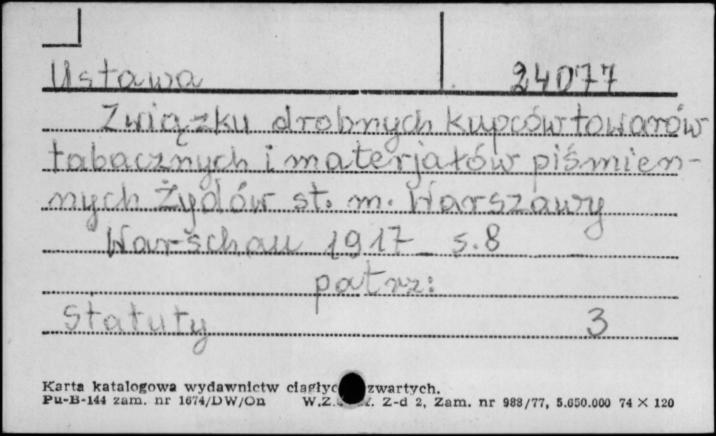 Ustawa 24077
Związku drobnych kupców towarów
tabacznych i materjałów piśmien-
nych Żydów st. m. Warszawy
Warschau 1917 s.8
patrz:
Statuty 3
Karta katalogowa wydawnictw ciągłyc zwartych.
Pu-B-144 zam. nr 1674/DW/On W.Z. Z-d 2, Zam. nr 988/77, 5.650.000 74 × 120